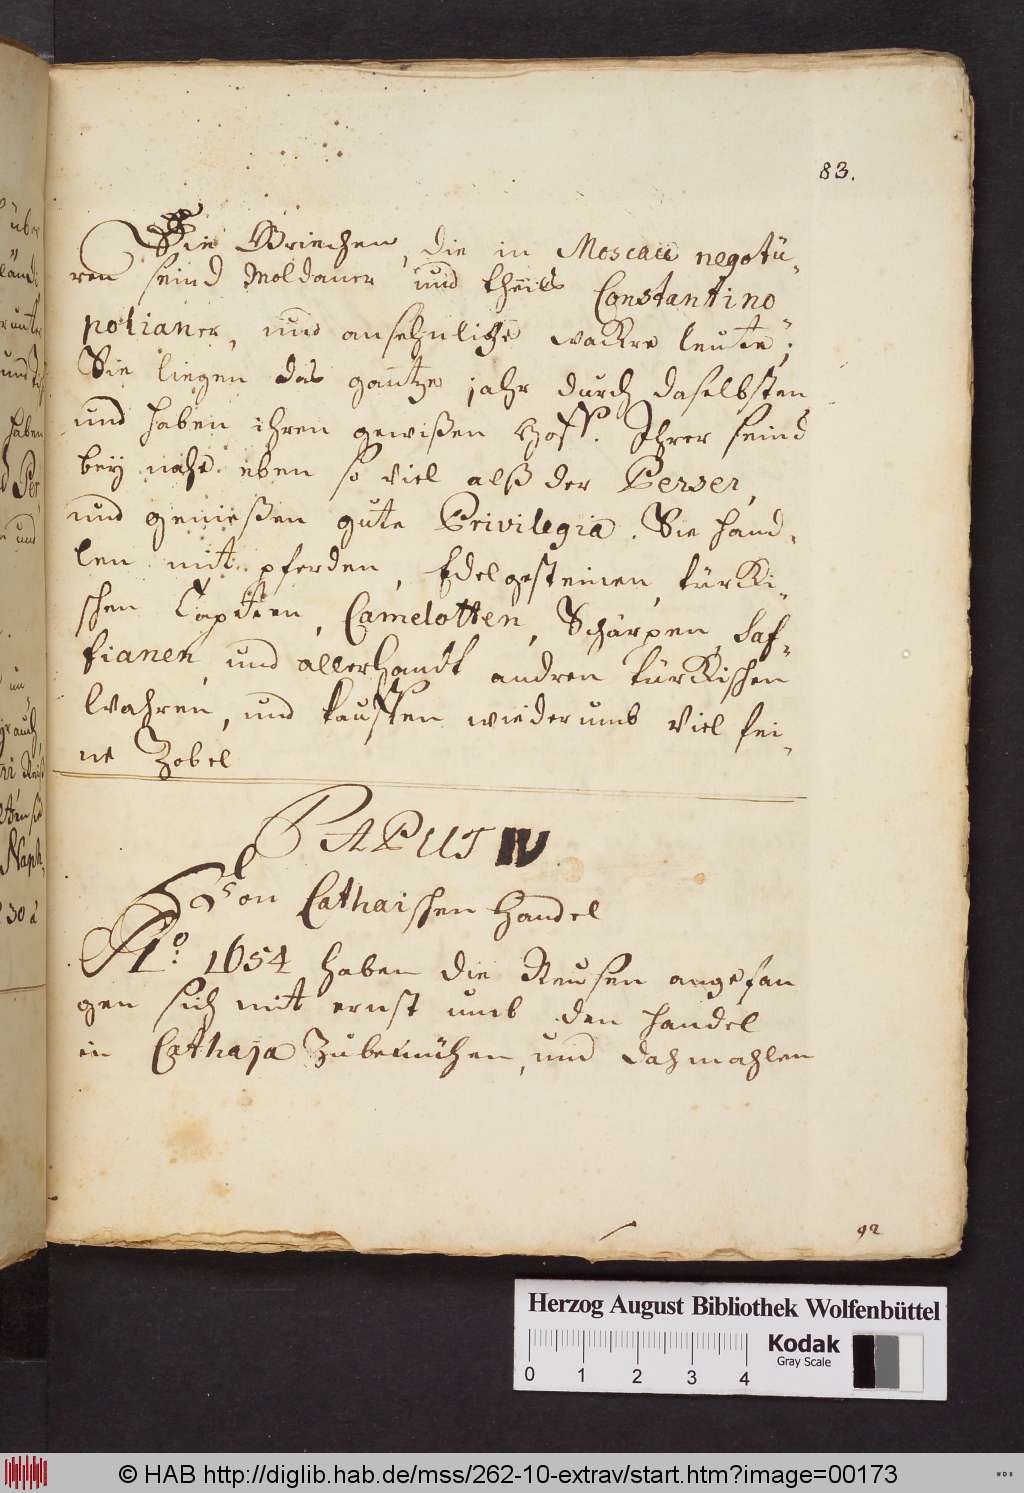 83.
Die Griechen, die in Moscau negotii-
ren seind Moldauer und theils Constantino
politaner, und ansehnliche wackre leute;
Sie liegen das gantze jahr durch daselbsten
und haben ihren gewißen Hoff. Ihrer seind
bey nahe eben so viel alß der Perser,
und genießen gute Privilegia. Sie hand-
len mit pferden, Edelgesteinen, türcki-
schen Tapeten, Camelotten, Schärpen, Saf-
fianen, und allerhandt andren türckischen
Wahren, und kauffen wiederumb viel fei-
ne Zobel
CAPUT IV
Von Cathaischen Handel
Ao: 1654 haben die Reusen angefan
gen sich mit ernst umb den handel
in Cathaja Zubemühen, und dahmahlen
92
über
unter
haben
Per
und
30
Herzog August Bibliothek Wolfenbüttel
0 1 2 3 4
Kodak
Gray Scale
© HAB http://diglib.hab.de/mss/262-10-extrav/start.htm?image=00173